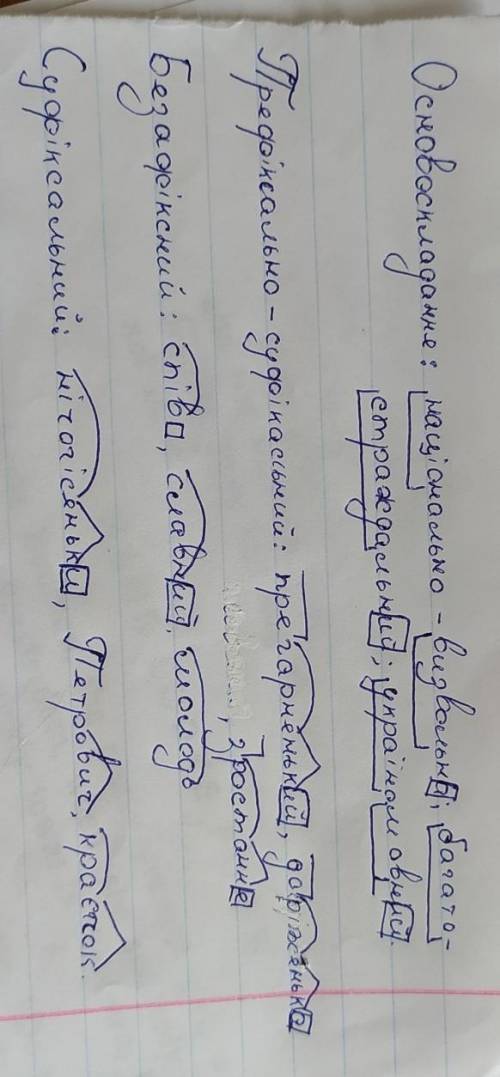 Основоскладання: національно-визвольна; багато-
страждальний; україномовний
Префіксально-суфіксальний: прегарненький, доріженька
зростання
Безафіксний: спів, славний, молодь
Суфіксальний: нічогісеньки, Петрович, красток.